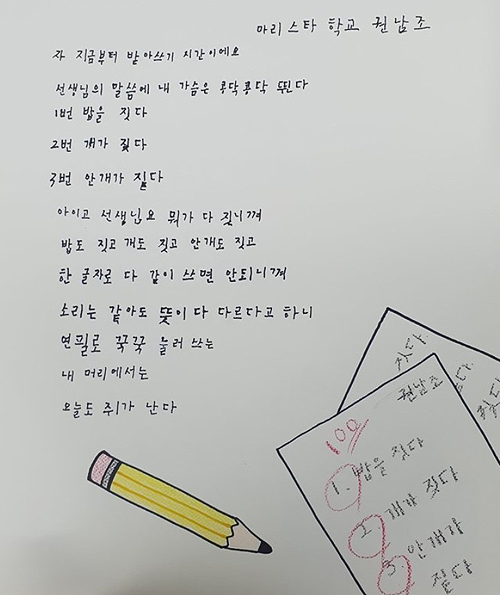 마리스타 학교 권남조
자 지금부터 받아쓰기 시간이에요
선생님의 말씀에 내 가슴은 콩닥콩닥 뛴다
1번 밥을 짓다
2번 개가 짖다
3번 안개가 짙다
아이고 선생님요 뭐가 다 짓니껴
밥도 짓고 개도 짓고 안개도 짓고
한 글자로 다 같이 쓰면 안되니껴
소리는 같아도 뜻이 다 다르다고 하니
연필로 꾹꾹 눌러 쓰는
내 머리에서는
오늘도 쥐가 난다
권남조
100
1. 밥을 짓다
2. 개가 짖다
3. 안개가
짙다